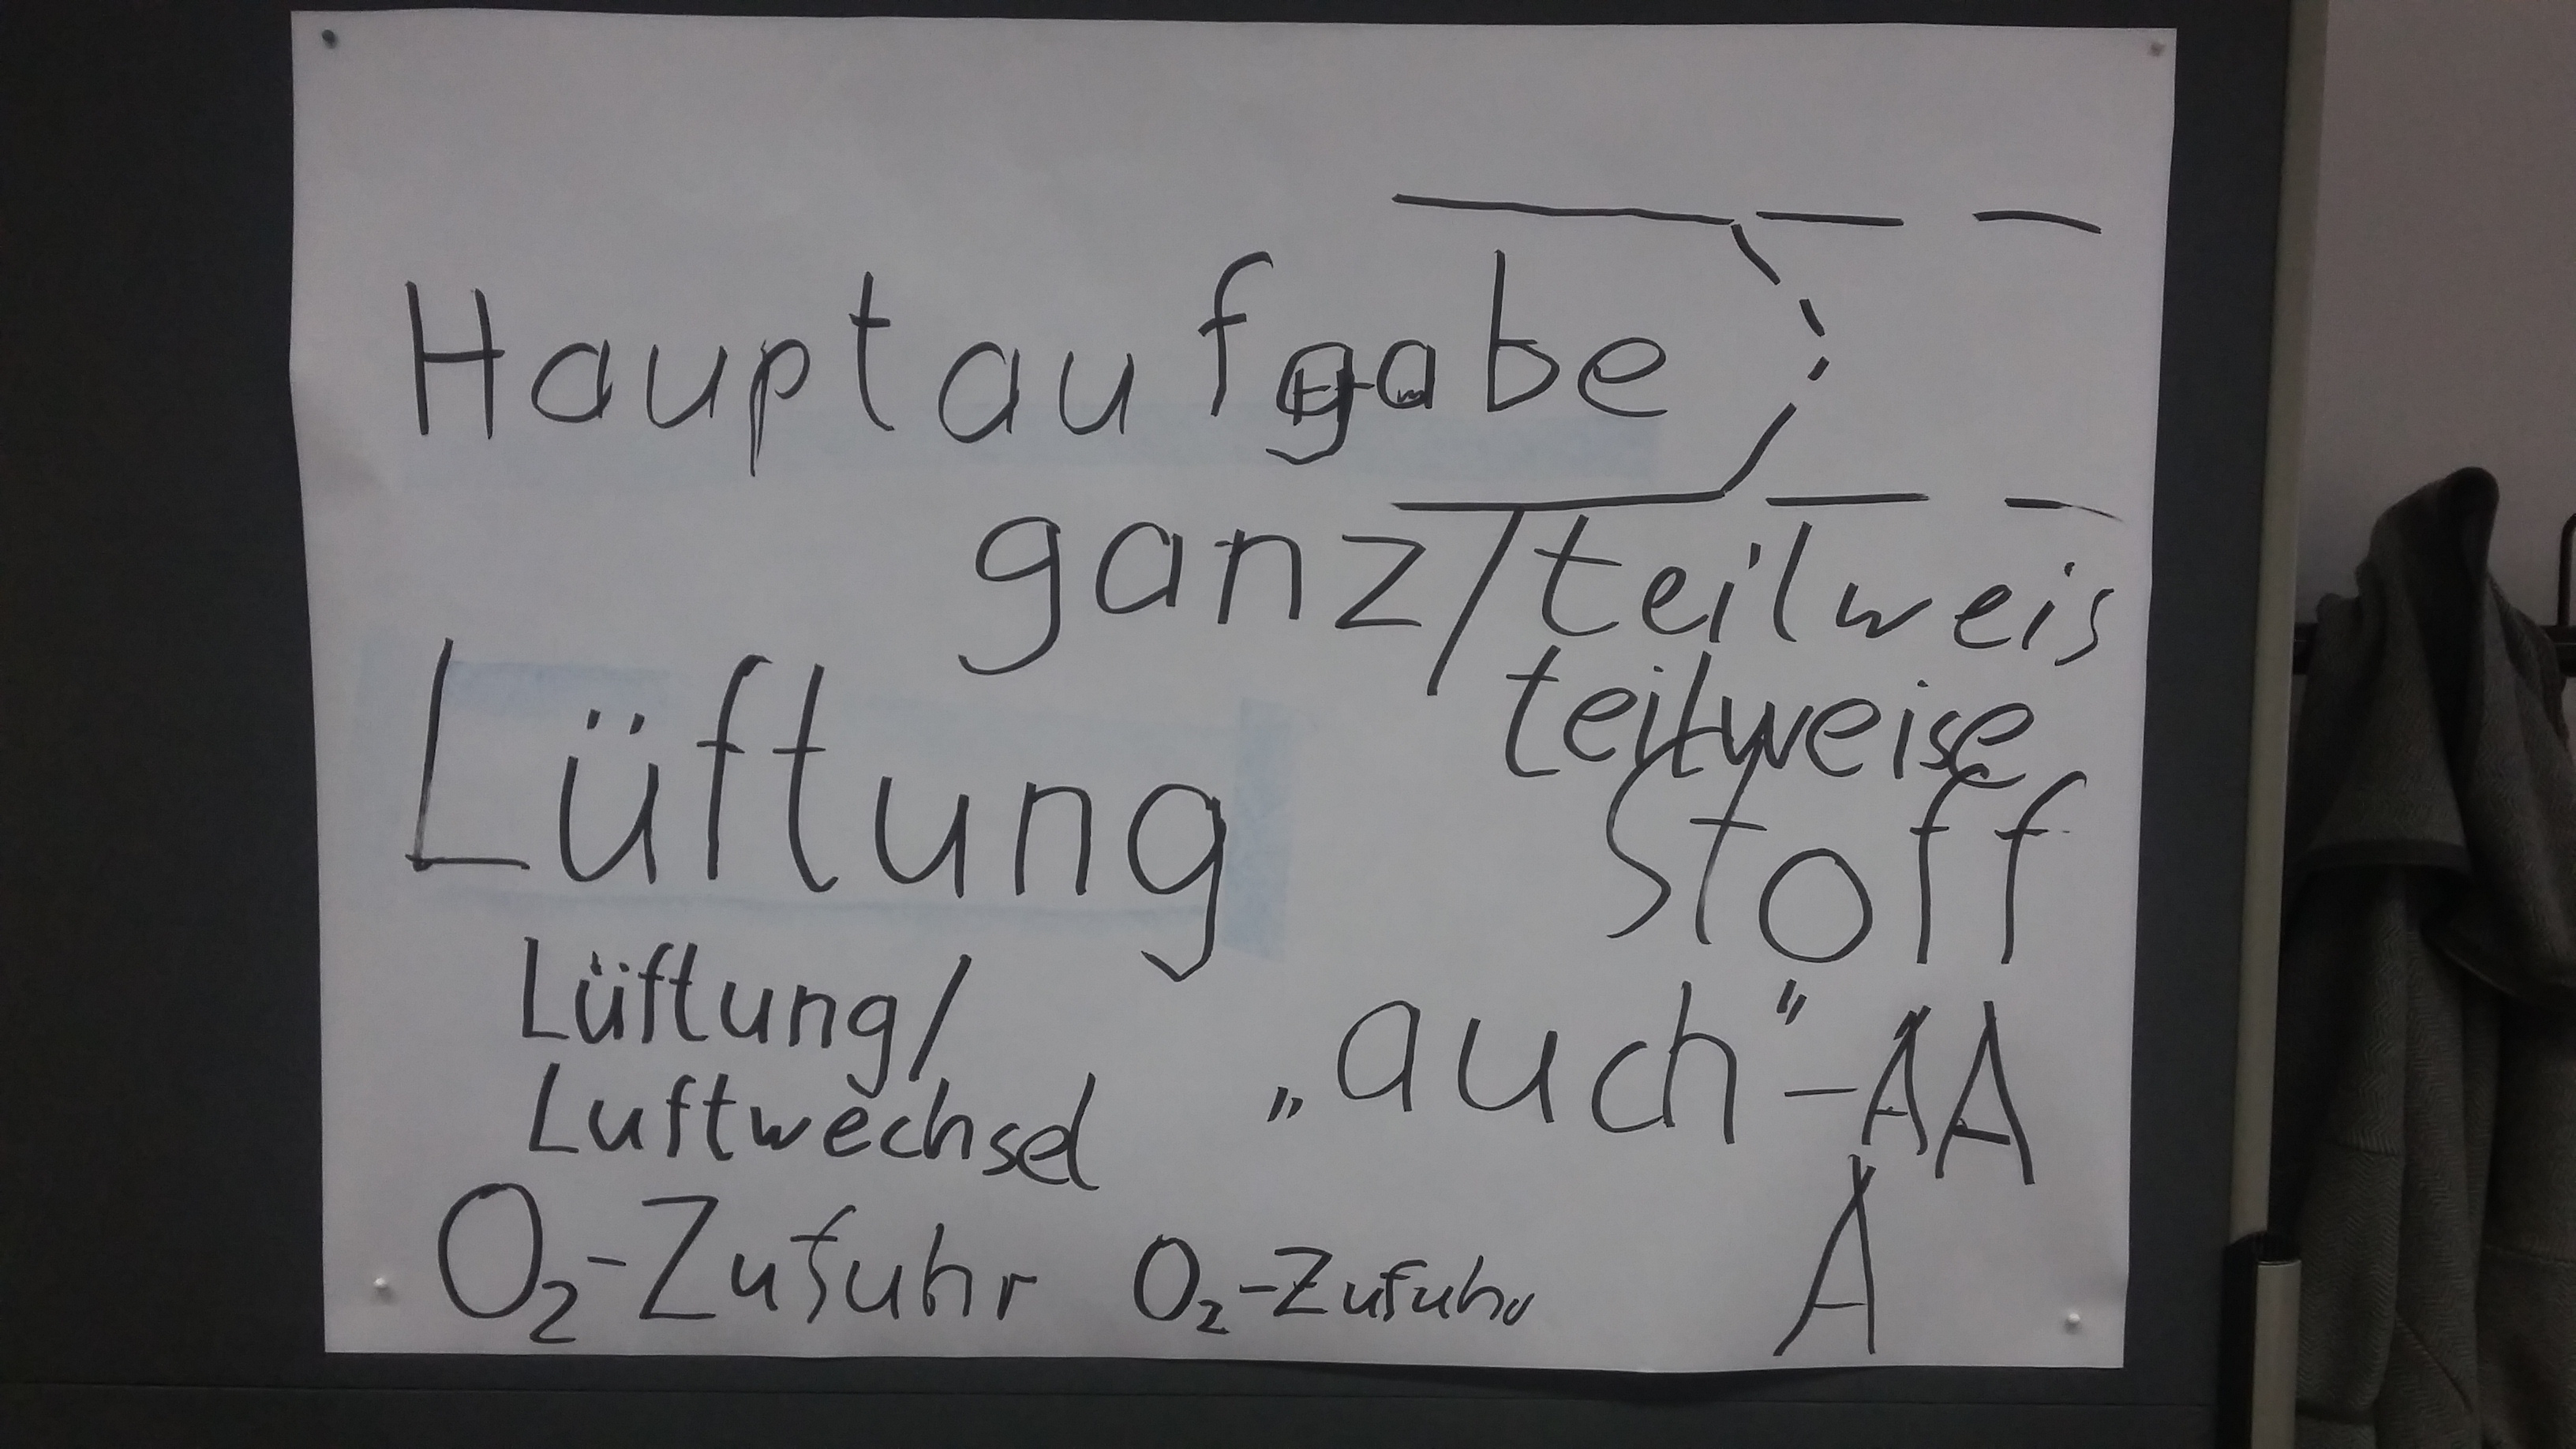 Hauptaufgabe
ganz/teilweis
teilweise
Lüftung
Stoff
Lüftung/
Luftwechsel
„auch" - AA
A
O₂-Zufuhr O₂-Zufuhr